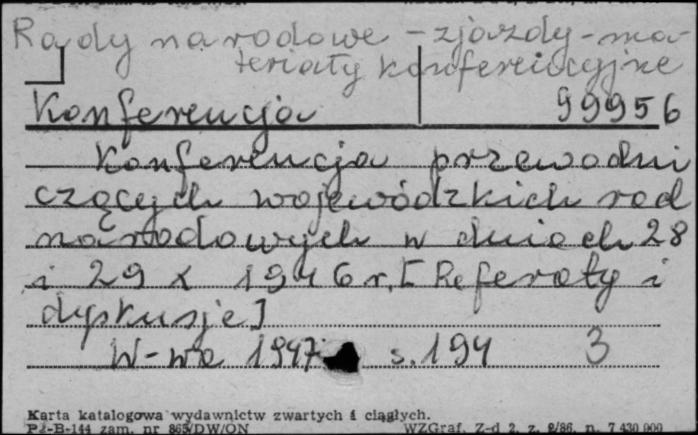 Rady narodowe - zjazdy - ma-
teriały konferencyjne
Konferencja 99956
Konferencja przewodni
czących wojewódzkich rad
narodowych w dniach 28
i 29 X 1946 r. [Referaty i
dyskusje]
W-wa 1947 s. 194 3
Karta katalogowa wydawnictw zwartych i ciągłych.
Pu-B-144 zam. nr 865/DW/ON WZGraf. Z-d 2, z. 2/86, n. 7 430 000